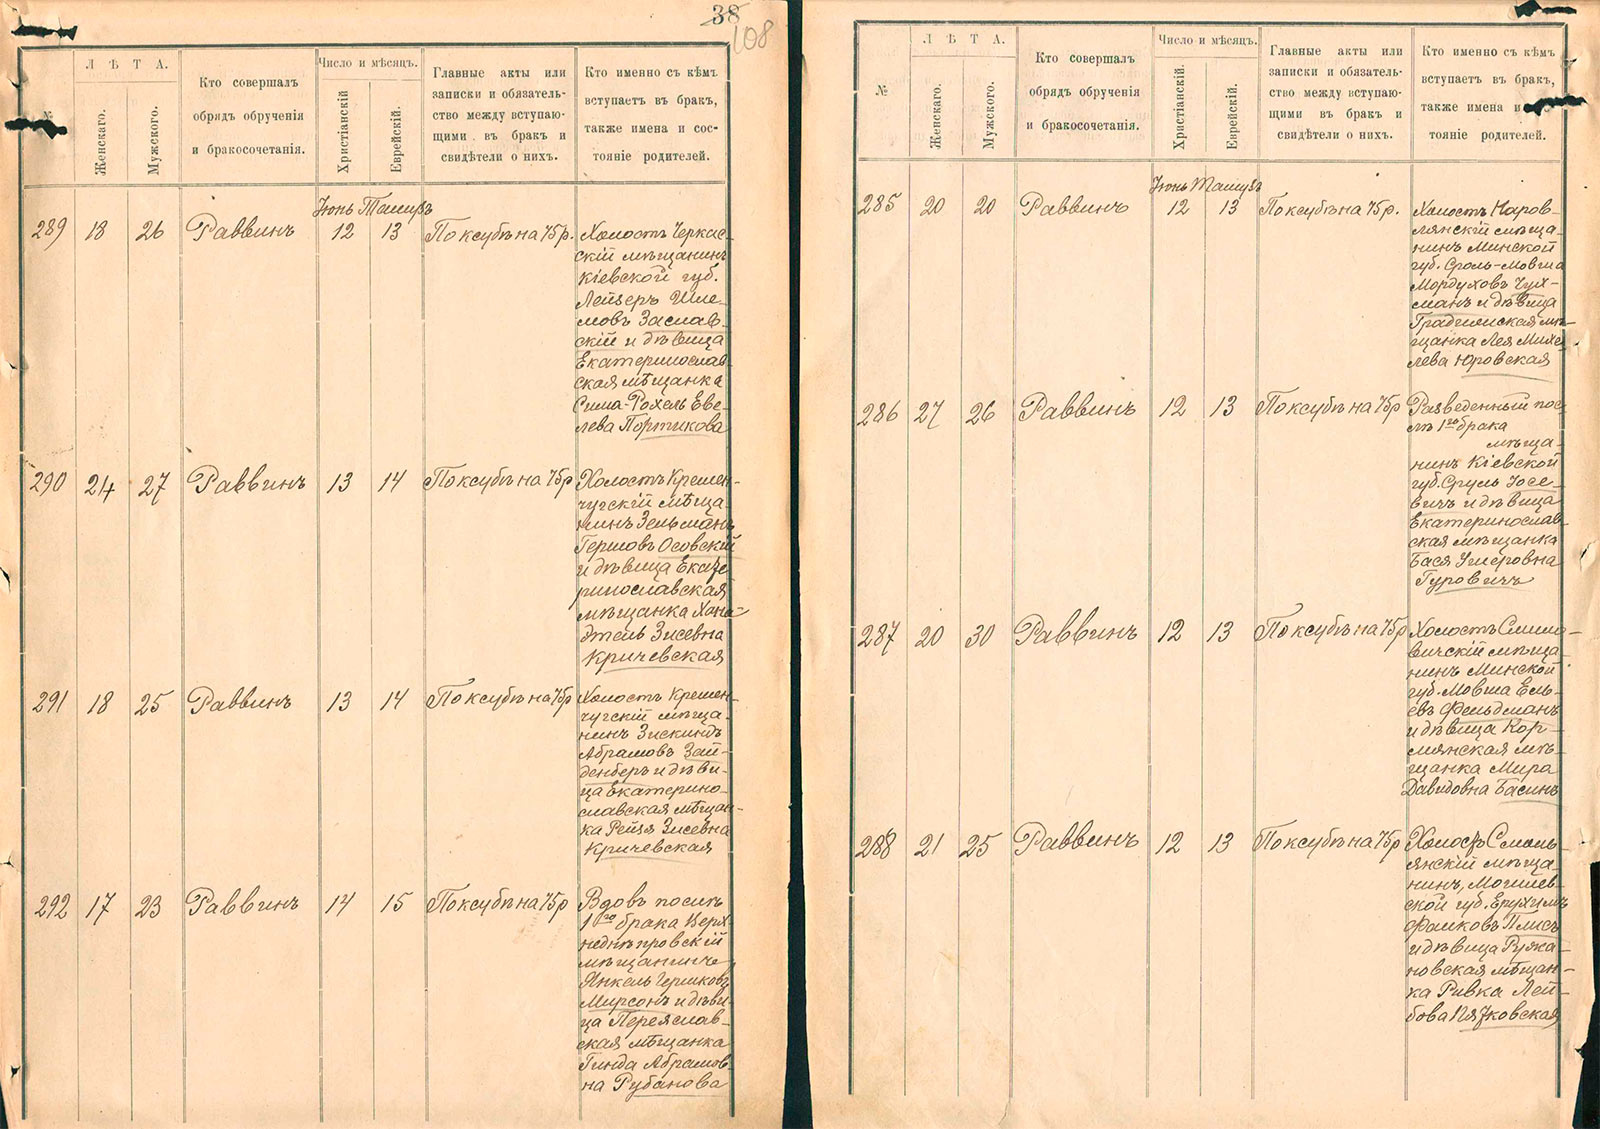 38
108
№
Л Ѣ Т А.
Женскаго.
Мужского.
Кто совершалъ
обрядъ обрученія
и бракосочетанія.
Число и мѣсяцъ.
Христіанскій
Еврейскій.
Главные акты или
записки и обязатель-
ство между вступаю-
щими въ бракъ и
свидѣтели о нихъ.
Кто именно съ кѣмъ
вступаетъ въ бракъ,
также имена и сос-
тояніе родителей.
Іюнь Тамузъ
289 18 26 Раввинъ 12 13 По ксубѣ на 75 р.
Холостъ Черкас-
скій мѣщанинъ
Кіевской губ.
Лейзеръ Шле-
мовъ Заслав-
скій и дѣвица
Екатеринослав-
ская мѣщанка
Сима-Рохель Еве-
лева Портикова
290 24 27 Раввинъ 13 14 По ксубѣ на 75 р
Холостъ Кремен-
чугскій мѣща-
нинъ Зельманъ
Гершовъ Осовскій
и дѣвица Екате-
ринославская
мѣщанка Хана-
Этель Зисевна
Кричевская
291 18 25 Раввинъ 13 14 По ксубѣ на 75 р
Холостъ Кремен-
чугскій мѣща-
нинъ Зискинъ
Абрамовъ Зай-
денберъ и дѣви-
ца Екатерино-
славская мѣщан-
ка Рейзя Зисевна
Кричевская
292 17 23 Раввинъ 14 15 По ксубѣ на 75 р
Вдовъ послѣ
1го брака Верх-
неднѣпровскій
мѣщанинъ
Янкель Гершковъ
Мирсонъ и дѣви-
ца Переяслав-
ская мѣщанка
Гинда Абрамов-
на Рубанова
№
Л Ѣ Т А.
Женскаго.
Мужского.
Кто совершалъ
обрядъ обрученія
и бракосочетанія.
Число и мѣсяцъ.
Христіанскій.
Еврейскій.
Главные акты или
записки и обязатель-
ство между вступаю-
щими въ бракъ и
свидѣтели о нихъ.
Кто именно съ кѣмъ
вступаетъ въ бракъ,
также имена и
тояніе родителей.
Іюнь Тамузъ
285 20 20 Раввинъ 12 13 По ксубѣ на 75 р.
Холостъ Наров-
лянскій мѣща-
нинъ Минской
губ. Сроль-Мовша
Мордуховъ Чух-
манъ и дѣвица
Градижская мѣ-
щанка Лея Михе-
лева Юровская
286 27 26 Раввинъ 12 13 По ксубѣ на 75 р
Разведенный пос-
лѣ 1го брака
мѣща-
нинъ Кіевской
губ. Сруль Іосе-
вичъ и дѣвица
Екатеринослав-
ская мѣщанка
Бася Умеровна
Гуровичъ
287 20 30 Раввинъ 12 13 По ксубѣ на 75 р
Холостъ Смило-
вичскій мѣща-
нинъ Минской
губ. Мовша Ель-
евъ Фельдманъ
и дѣвица Кор-
мянская мѣ-
щанка Мира
Давидовна Басинъ
288 21 25 Раввинъ 12 13 По ксубѣ на 75 р
Холостъ Смоль-
янскій мѣща-
нинъ, Могилев-
ской губ. Ерухимъ
Фалковъ Плисъ
и дѣвица Ружа-
новская мѣщан-
ка Ривка Лей-
бова Пятковская